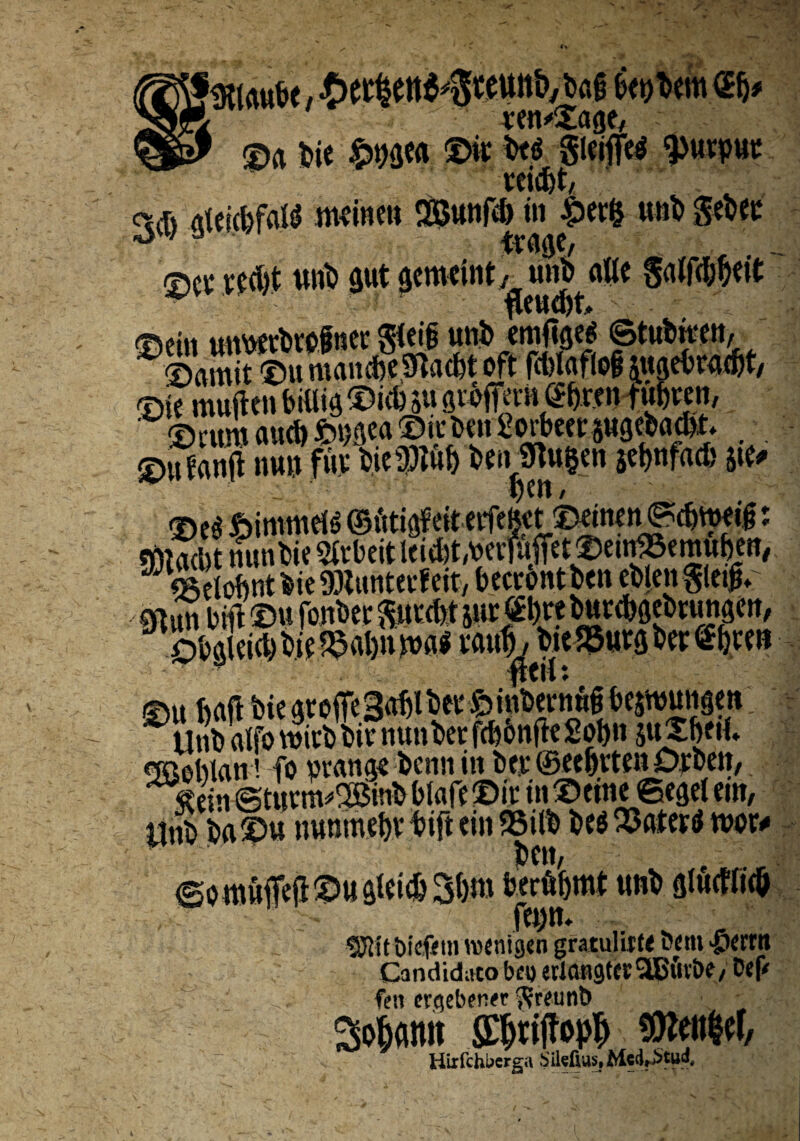 Erlaube, Hertzens-Freund, daß bey dem Eh-
ren-Tage,
Da die Hygea Dir des Fleisses Purpur
reicht,
Ich gleichfals meinen Wunsch in Hertz und Feder
trage,
Der recht und gut gemeint, und alle Falschheit
fleucht.
Dein unverdroßner Fleiß und emsiges Studiren,
Damit Du manche Nacht oft schlaflos zugebracht,
Die musten billig Dich zu grössern Ehren führen,
Drum auch Hygea Dir den Lorbeer zugedacht.
Du kanst nun für die Müh den Nutzen zehnfach zie-
hen,
Des Himmels Gütigkeit ersetzet Deinen Schweiß:
Macht nun die Arbeit leicht, versüsset Dein Bemühen,
Belohnt die Munterkeit, beerönt den edlen Fleiß.
Nun bist Du sonder Furcht zur Ehre durchgedrungen,
Obgleich die Bahn was rauh, die Burg der Ehren
steil:
Du hast die grosse Zahl der Hinderniß bezwungen
Und also wird dir nun der schönste Lohn zu Theil.
Wohlan! so prange denn in der Geehrten Orden,
Kein Sturm-Wind blase Dir in Deine Segel ein,
Und da Du nunmehr bist ein Bild des Vaters wor-
den,
So müssest Du gleich Ihm berühmt und glücklich
seyn.
Mit diesem wenigen gratulirte dem Herrn
Candidato bey erlangter Würde, des-
sen ergebener Freund
Johann Christoph Mentzel,
Hirschberga Silesius, Med. Stud.